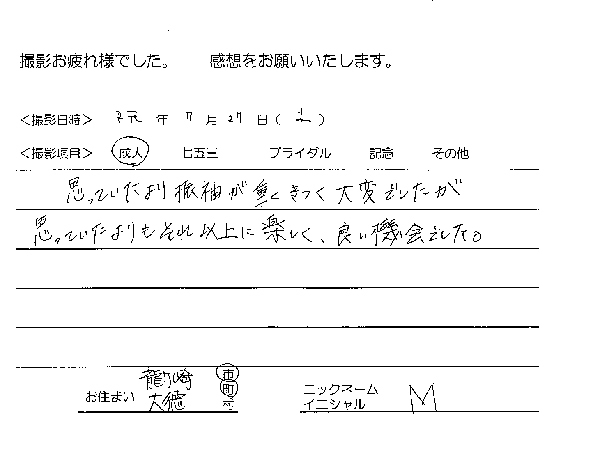 撮影お疲れ様でした。 感想をお願いいたします。
＜撮影日時＞ R元 年 7 月 27 日 ( 土 )
＜撮影項目＞ 成人 七五三 ブライダル 記念 その他
思っていたより振袖が重くきつく大変でしたが
思っていたよりもそれ以上に楽しく、良い機会でした。
お住まい 龍ヶ崎 市
大徳 町
ニックネーム
イニシャル M